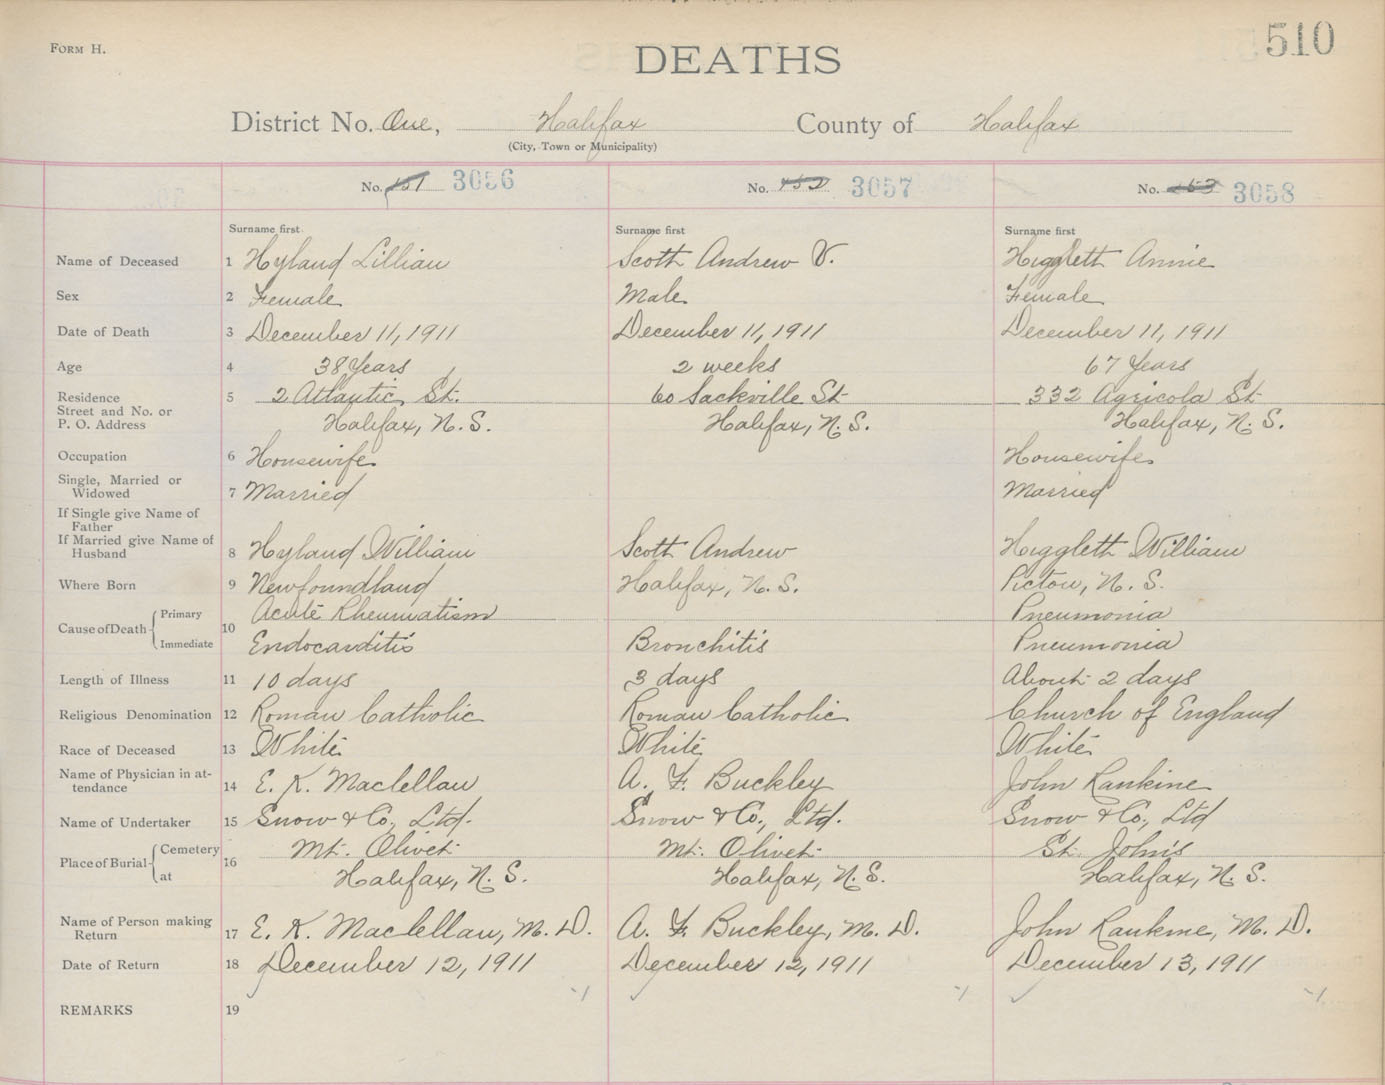 FORM H.
DEATHS
510
District No. One, Halifax County of Halifax
(City, Town or Municipality)
No. 151 3056 No. 152 3057 No. 153 3058
Surname first Surname first Surname first
Name of Deceased 1 Hyland Lillian Scott Andrew V. Higgleth Annie
Sex 2 Female Male Female
Date of Death 3 December 11, 1911 December 11, 1911 December 11, 1911
Age 4 38 Years 2 weeks 67 Years
Residence 5 2 Atlantic St. 60 Sackville St 332 Agricola St
Street and No. or
P. O. Address Halifax, N. S. Halifax, N. S. Halifax, N. S.
Occupation 6 Housewife Housewife
Single, Married or
Widowed 7 Married Married
If Single give Name of
Father
If Married give Name of
Husband 8 Hyland William Scott Andrew Higgleth William
Where Born 9 Newfoundland Halifax, N. S. Pictou, N. S.
Cause of Death 10 Primary Acute Rheumatism Pneumonia
Immediate Endocarditis Bronchitis Pneumonia
Length of Illness 11 10 days 3 days About 2 days
Religious Denomination 12 Roman Catholic Roman Catholic Church of England
Race of Deceased 13 White White White
Name of Physician in at-
tendance 14 E. K. Maclellan A. F. Buckley John Rankine
Name of Undertaker 15 Snow & Co., Ltd. Snow & Co., Ltd. Snow & Co., Ltd
Place of Burial 16 Cemetery Mt. Olivet Mt. Olivet St. John's
at Halifax, N. S. Halifax, N. S. Halifax, N. S.
Name of Person making
Return 17 E. K. Maclellan, M. D. A. F. Buckley, M. D. John Rankine, M. D.
Date of Return 18 December 12, 1911 December 12, 1911 December 13, 1911
REMARKS 19